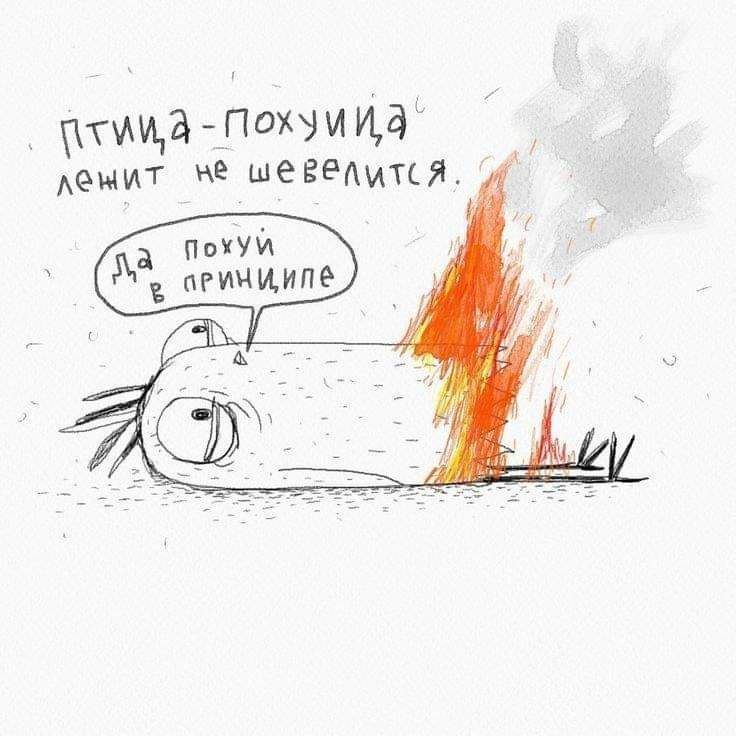 Птица-похуица
лежит не шевелится.
Да похуй
в принципе